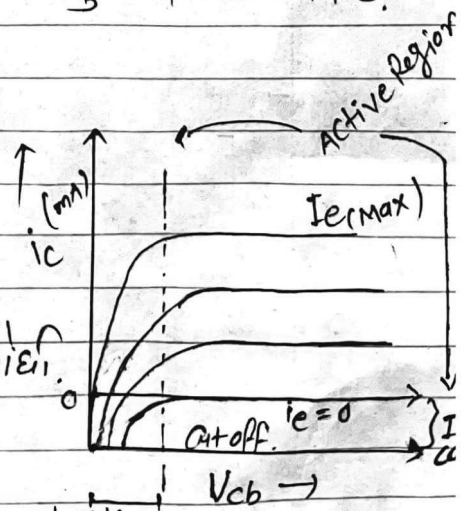 ACTIVE Region
(mA)
ic
Ie(Max)
0
ie = 0
Cut off.
I
Vcb →